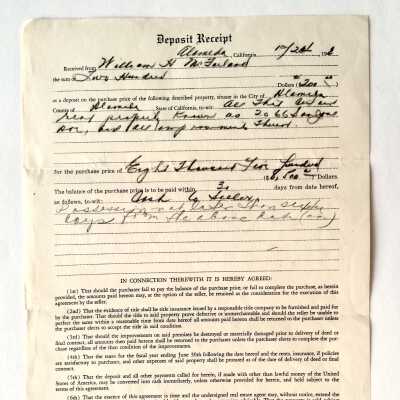 Deposit Receipt
Alameda, California 10/24 194
Received from William H McFarland
the sum of Two Hundred Dollars ($200
as a deposit on the purchase price of the following described property, situate in the City of Alameda
County of Alameda State of California, to-wit: All That
real property known as 2066 San Jose
Ave, and all improvements Thereon
For the purchase price of Eight Thousand Five Hundred Dollars.
The balance of the purchase price is to be paid within 30 days from date hereof,
as follows, to-wit: Cash to Seller
Possession
days from the above date
IN CONNECTION THEREWITH IT IS HEREBY AGREED:
(1st) That should the purchaser fail to pay the balance of the purchase price, or fail to complete the purchase, as herein
provided, the amounts paid hereon may, at the option of the seller, be retained as the consideration for the execution of this
agreement by the seller.
(2nd) That the evidence of title shall be title insurance issued by a responsible title company to be furnished and paid for
by the purchaser. That should the title to said property prove defective or unmerchantable and should the seller be unable to
perfect the same within a reasonable time from date hereof all amounts paid hereon shall be returned to the purchaser unless the
purchaser elects to accept the title in said condition.
(3rd) That should the improvements on said premises be destroyed or materially damaged prior to delivery of deed or
final contract, all amounts then paid hereon shall be returned to the purchaser unless the purchaser elects to complete the pur-
chase regardless of the then condition of improvements.
(4th) That the taxes for the fiscal year ending June 30th following the date hereof and the rents, insurance, if policies
are satisfactory to purchaser, and other expenses of said property shall be prorated as of the date of delivery of deed or final
contract.
(5th) That the deposit and all other payments called for herein, if made with other than lawful money of the United
States of America, may be converted into cash immediately, unless otherwise provided for herein, and held subject to the
terms of this agreement.
(6th) That the essence of this agreement is time and the undersigned real estate agent may, without notice, extend the